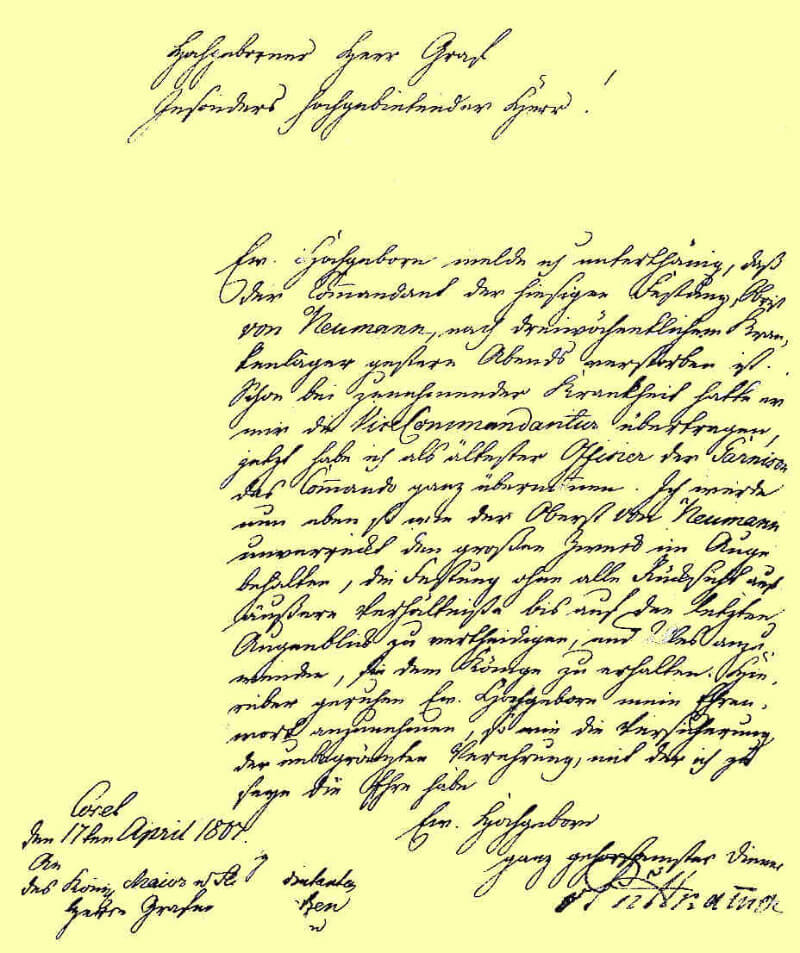 Hochgeborner Herr Graf
Besonders hochgebietender Herr!
Ew. Hochgeborn melde ich unterthänig, daß
der Commandant der hiesigen Festung, Obrist
von Neumann, nach dreiwöchentlichem Kran-
kenlager gestern Abends verstorben ist.
Schon bei zunehmender Krankheit hatte er
mir die ViceCommandantur übertragen,
jetzt habe ich als ältester Offizier der Garnison
das Commando ganz übernommen. Ich werde
nun eben so wie der Oberst von Neumann
unverrückt den großen Zweck im Auge
behalten, die Festung ohne alle Rücksicht auf
äußere Verhältniße bis auf den letzten
Augenblick zu vertheidigen, und alles anzu-
wenden, sie dem Könige zu erhalten. Hie-
rüber geruhen Ew. Hochgeborn mein Ehren-
wort anzunehmen, so wie die Versicherung
der unbegränzten Verehrung, mit der ich zu
seyn die Ehre habe
Ew. Hochgeborn
ganz gehorsamster Diener
v Puttkamer
Cosel
den 17ten April 1807.
An
des König. Major
Herrn Grafen